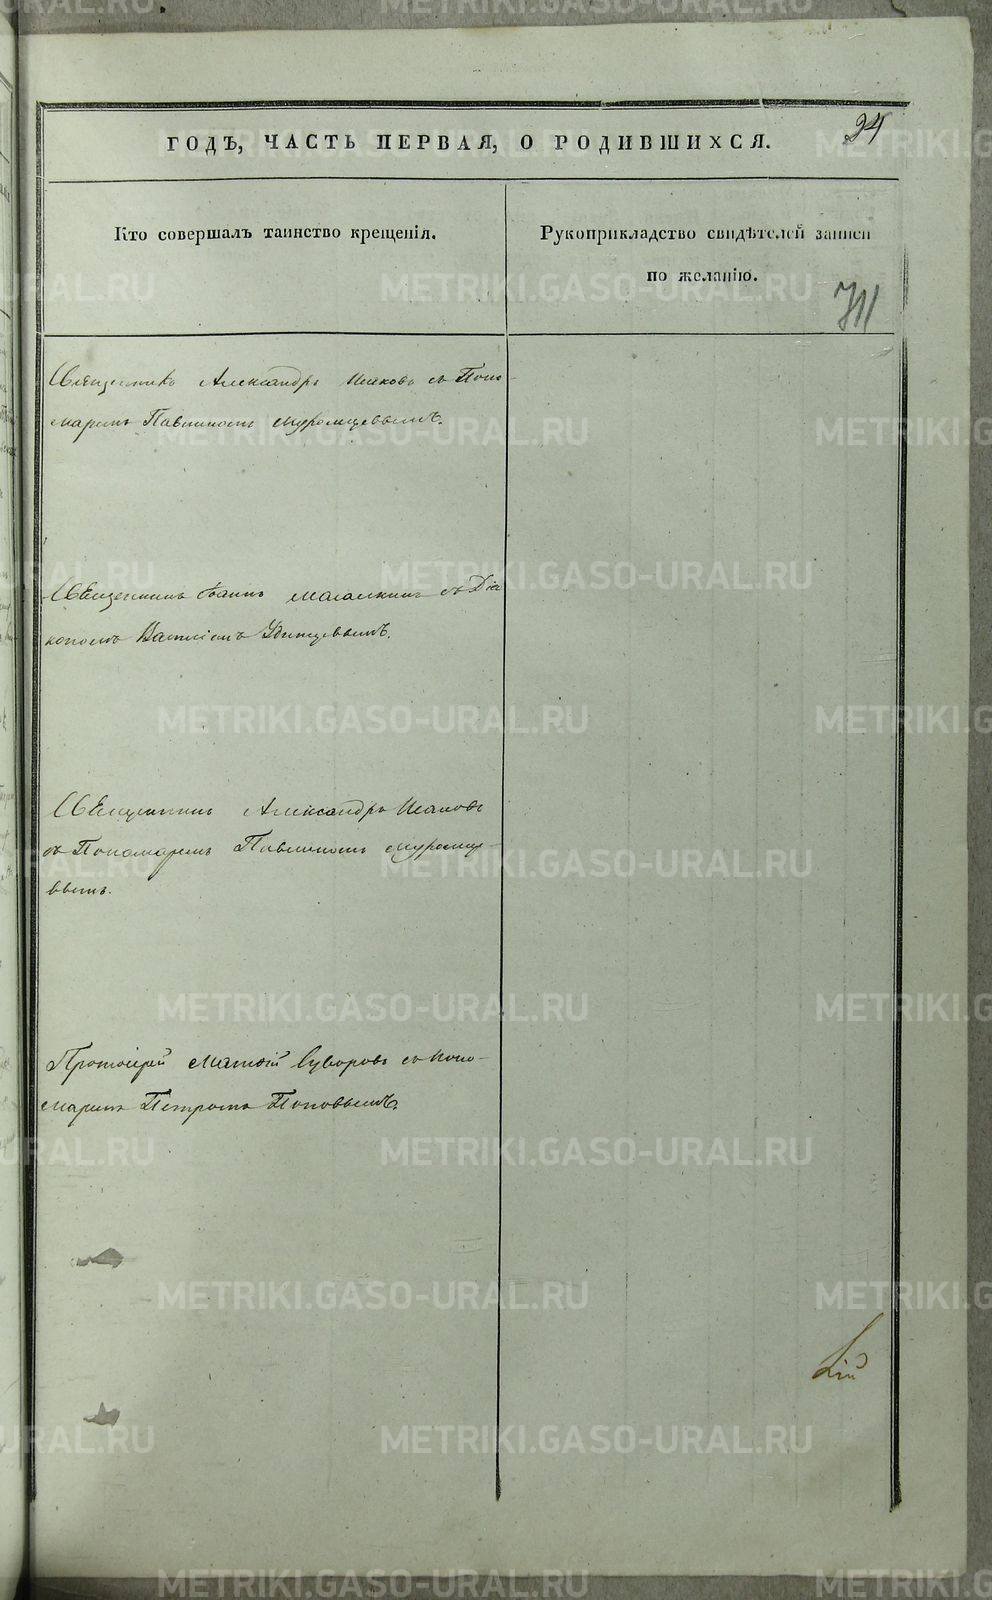 ГОДЪ, ЧАСТЬ ПЕРВАЯ, О РОДИВШИХСЯ.
24
Кто совершалъ таинство крещенія.
Рукоприкладство свидѣтелей записи
по желанію.
711
Священникъ Александръ Исаковъ съ Поно-
маремъ Павлиномъ Муромцевымъ.
Священникъ Іоаннъ съ Діа
кономъ Василіемъ
Священникъ Александръ Исаковъ
съ Пономаремъ Павлиномъ Муромце-
вымъ.
Протоіерей Матѳій Суворовъ съ Поно-
маремъ Петромъ Поповымъ.
METRIKI.GASO-URAL.RU